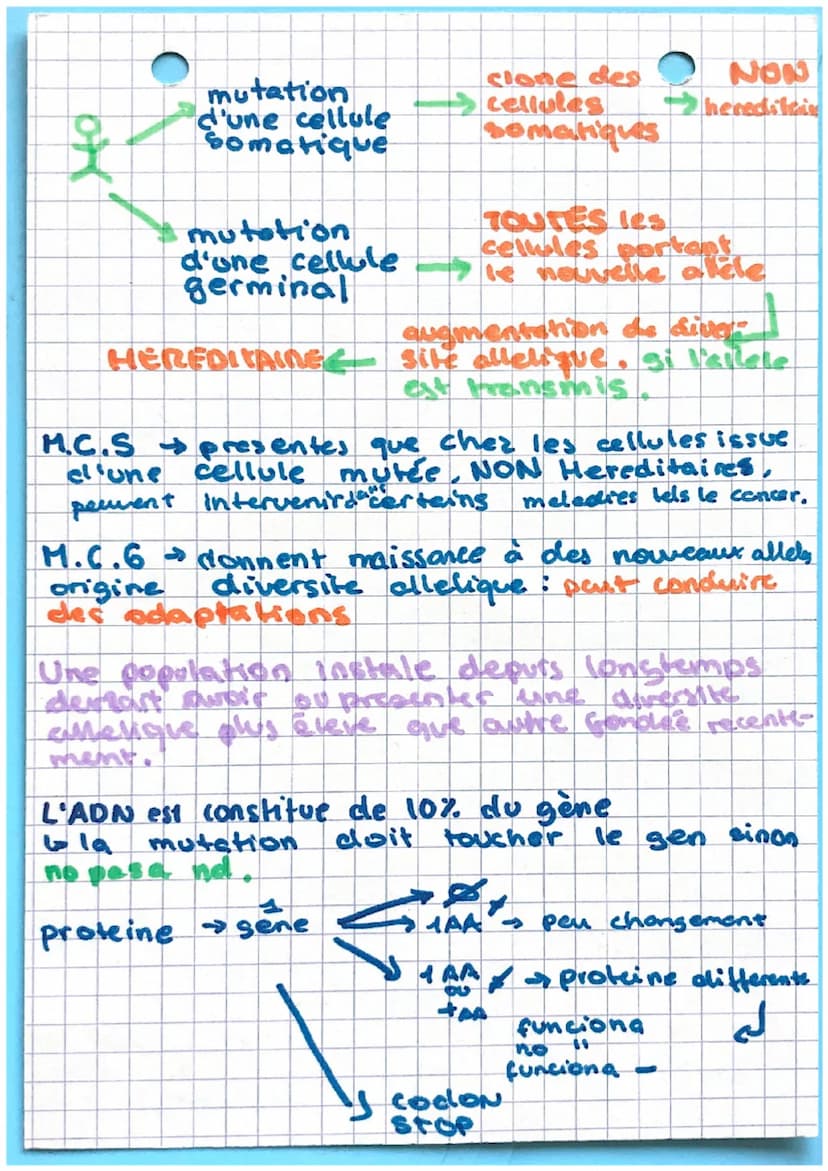 mutation
d'une cellule
somatique
→ clone des
cellules
somatiques
→ NON
hereditaire
mutation
d'une cellule
germinal
→ TOUTES les
cellules portant
le nouvelle allèle
augmentation de diver-
sité allelique. si l'allèle
est transmis.
← HÉRÉDITAIRE
M.C.S → presentes que chez les cellules issue
d'une cellule mutée, NON Hereditaires,
peuvent intervenir dans certains maladies tels le cancer.
M.C.G → donnent naissance à des nouveaux allels
origine diversite allelique : peut conduire
des adaptations
Une population instale depuis longtemps
devrait avoir ou presenter une diversite
allelique plus éleve que autre fondée recente-
ment.
L'ADN est constitue de 10% du gène
↳ la mutation doit toucher le gen sinon
no pasa nd.
proteine → 1 gène
→ Ø
→ 1AA ≠ → peu changement
→ 1 AA ≠ → proteine differente
ou
+AA
funciona
no "
funciona —
CODON
STOP